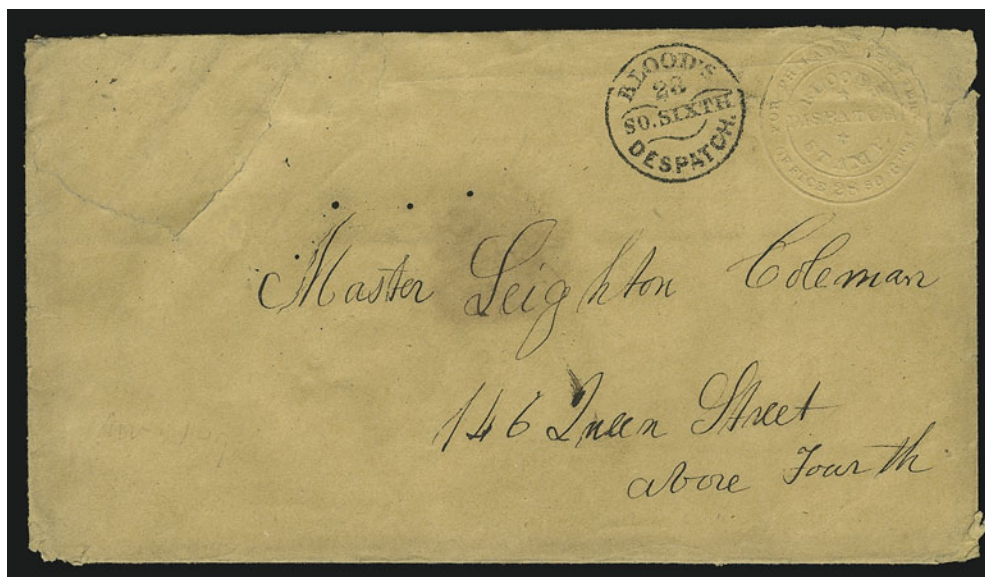 BLOOD'S
28
SO. SIXTH
DESPATCH.
BLOOD'S
DISPATCH
STAMP
OFFICE 28 SO
Master Leighton Coleman
146 Queen Street
above Fourth